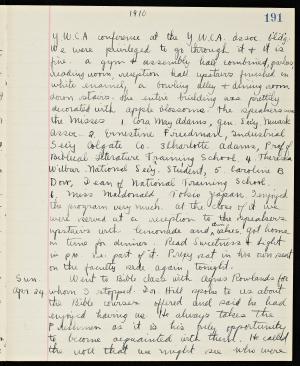 1910
191
Y.W.C.A conference at the Y.W.C.A. assoc. bldg.
We were privileged to go through it & it is
fine. a gym & assembly hall combined, parlors
reading room, reception hall upstairs finished in
white enamel, a bowling alley & dining room
down stairs. The entire building was prettily
decorated with apple blossoms. The speakers were
the Misses 1. Cora May Adams, gen. Secy Newark
Assoc. 2. Ernestine Friedman, Industrial
Secy Colgate Co. 3 Charlotte Adams, Prof of
Biblical Literature Training School. 4. Theresa
Wilbur National Secy. Student, 5. Caroline B
Dow, Dean of National Training School.
6. Miss Macdonald Tokio Japan, I enjoyed
the program very much. At the close of it we
were served at a reception to the speakers
upstairs with lemonade and cakes, got home
in time for dinner. Read Sweetness & Light
in P.M. i.e. part of it. Prexy sat in his own seat
on the faculty side again tonight.
Sun. Went to Bible class with Agnes Rowlands for
Apr 24 whom I stopped. Dr Hill spoke to us about
the Bible courses offered and said he had
enjoyed having us. He always takes the
Freshmen as it is his only opportunity
to become acquainted with them. He called
the roll that we might see who were